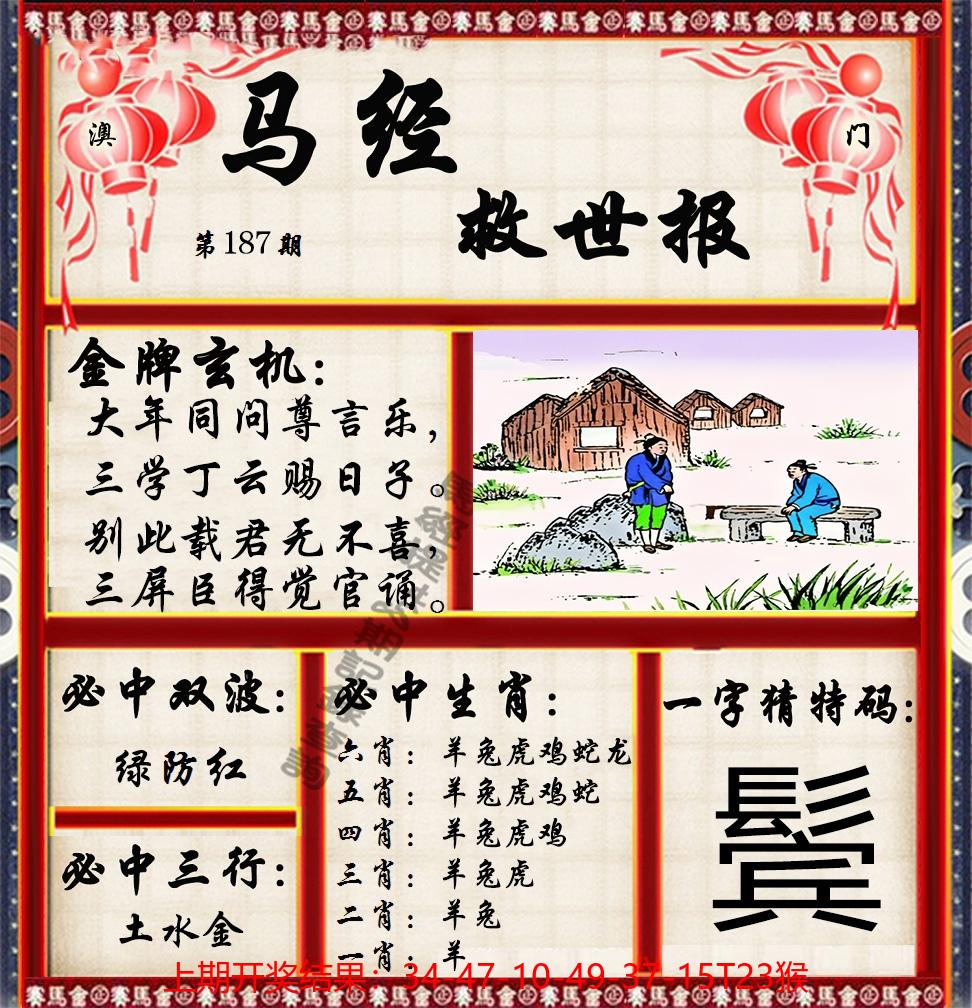 澳
门
马经
救世报
第187期
金牌玄机：
大年同问尊言乐，
三学丁云赐日子。
别此载君无不喜，
三屏臣得觉官诵。
必中双波：
绿防红
必中三行：
土水金
必中生肖：
六肖：羊兔虎鸡蛇龙
五肖：羊兔虎鸡蛇
四肖：羊兔虎鸡
三肖：羊兔虎
二肖：羊兔
一肖：羊
一字猜特码：
鬓
上期开奖结果：34-47-10-49-37-15T23猴